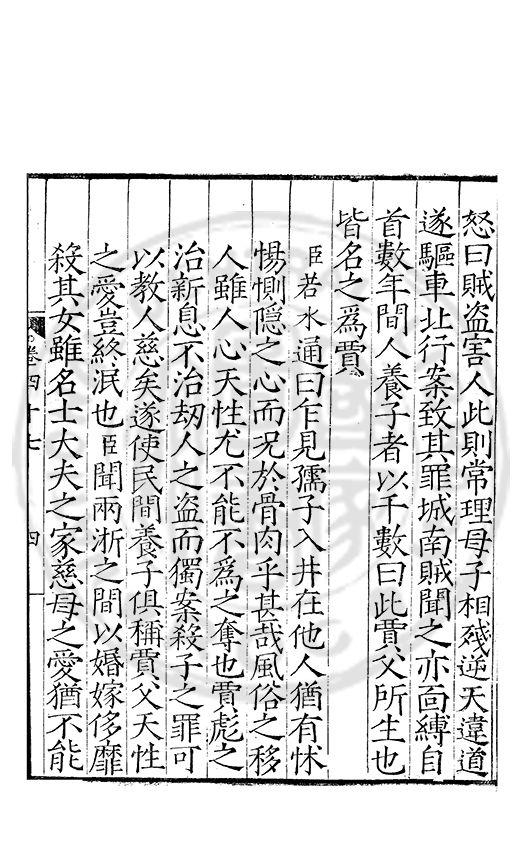 怒曰賊盗害人此則常理母子相殘逆天違道
遂驅車北行案致其罪城南賊聞之亦面縛自
首數年間人養子者以千數曰此賈父所生也
皆名之爲賈
臣若水通曰乍見孺子入井在他人猶有怵
惕惻隱之心而况於骨肉乎甚哉風俗之移
人雖人心天性尤不能不爲之奪也賈彪之
治新息不治刼人之盗而獨案殺子之罪可
以教人慈矣遂使民間養子俱稱賈父天性
之愛豈終泯也臣聞兩浙之間以婚嫁侈靡
殺其女雖名士大夫之家慈母之愛猶不能
卷四十七
四